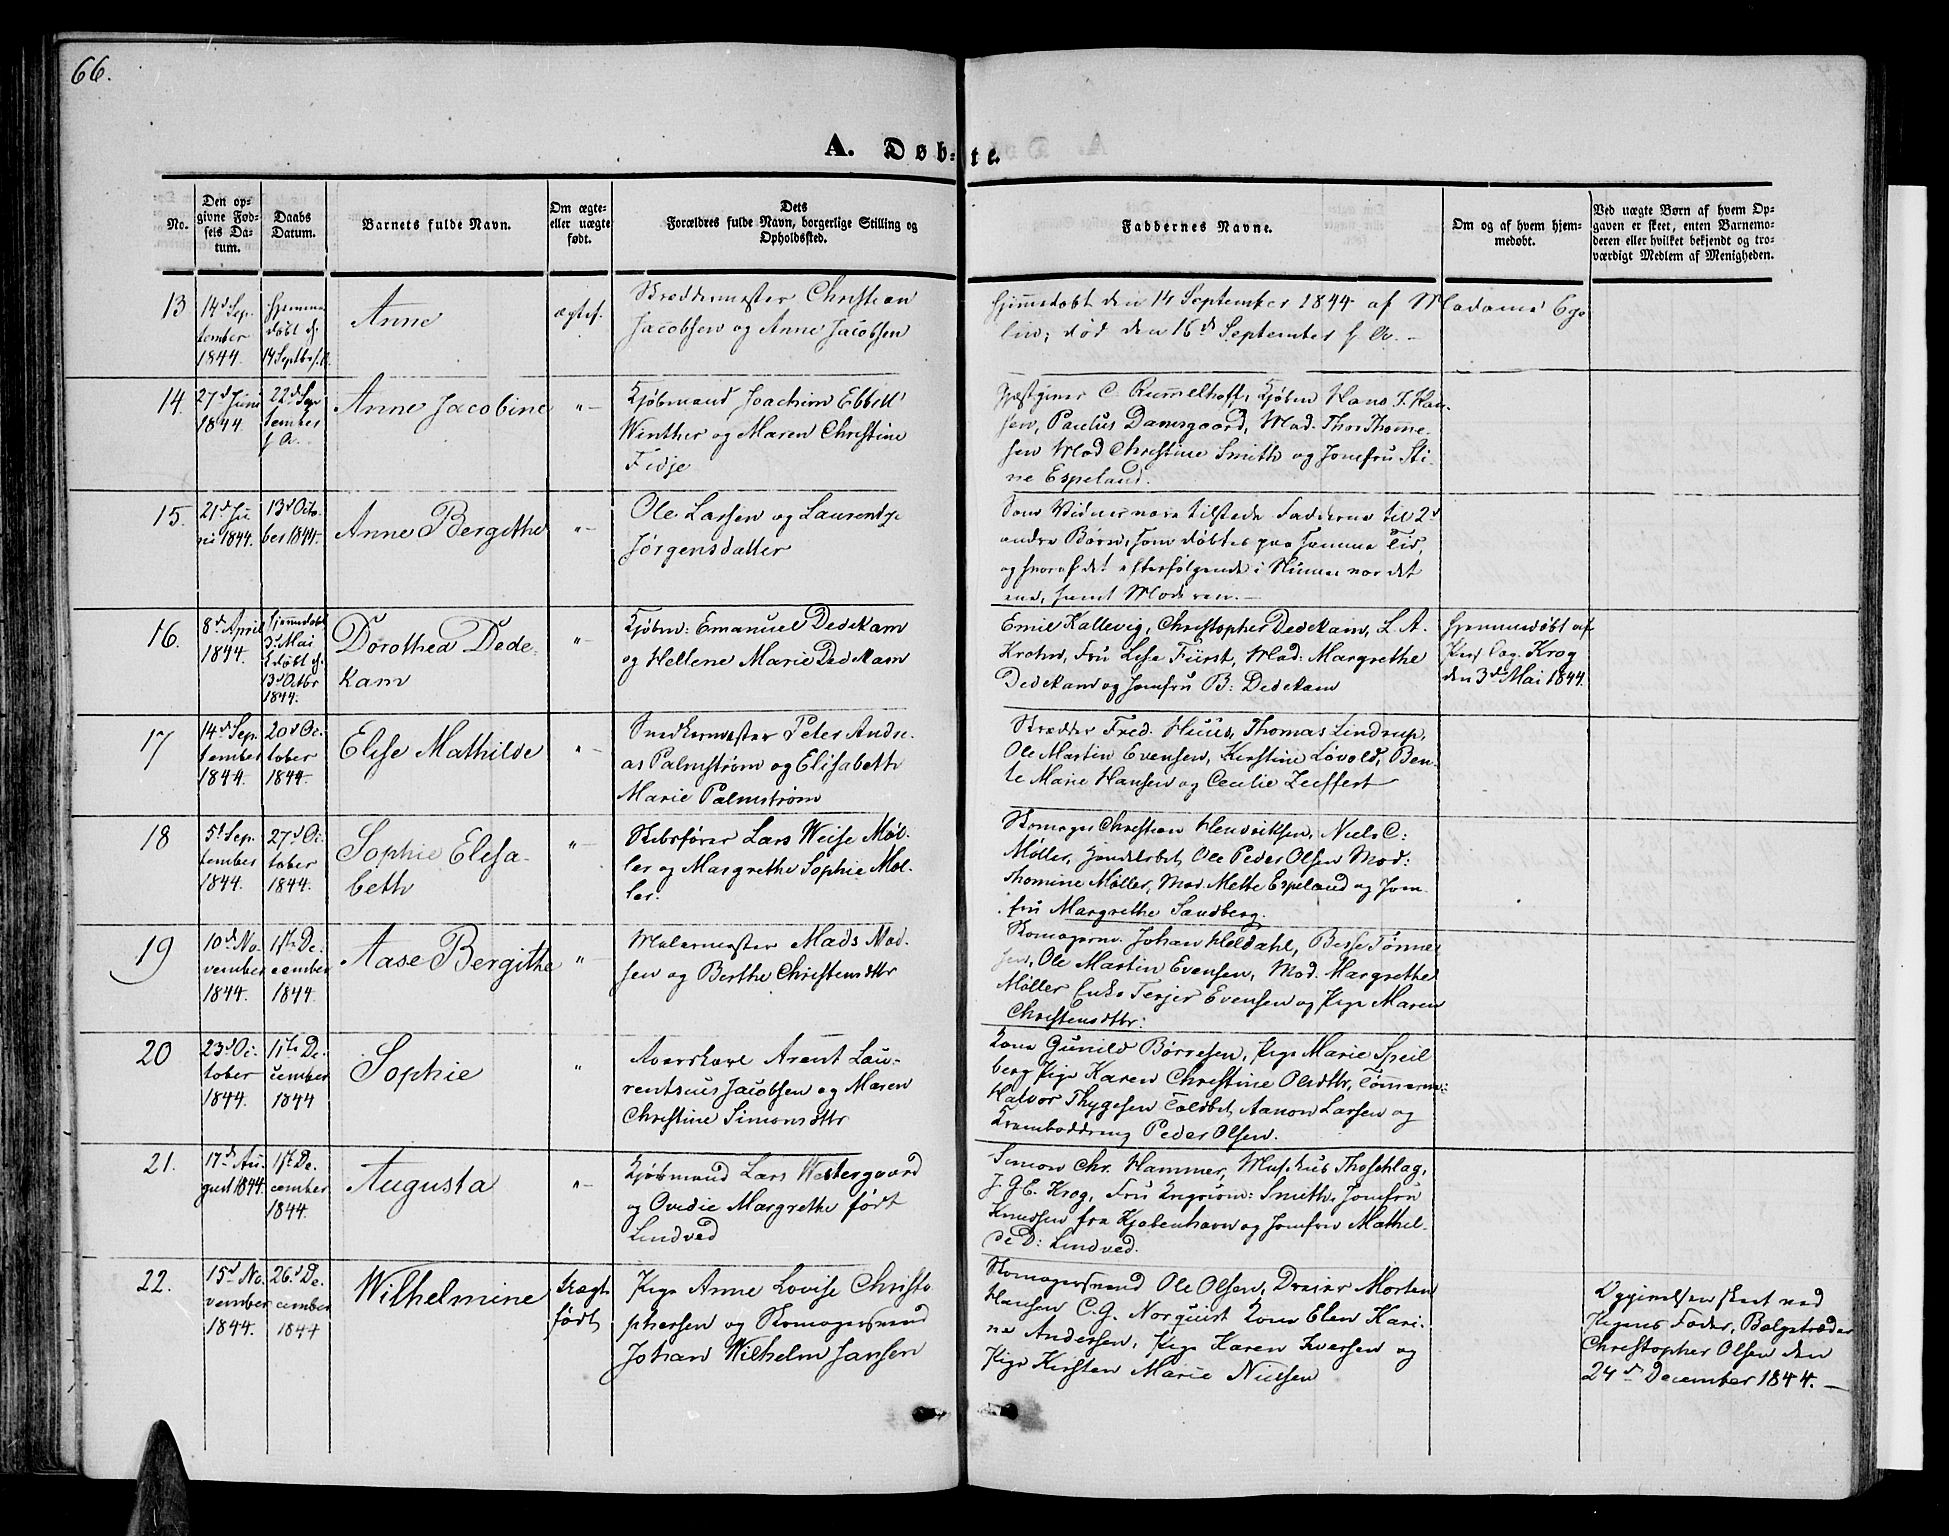 66.
A. Døb-
te.
No.
Den op-
givne Fød-
sels Da-
tum.
Daabs
Datum.
Barnets fulde Navn.
Om ægte-
eller uægte
født.
Dets
Forældres fulde Navn, borgerlige Stilling og
Opholdssted.
Faddernes Navne.
Om og af hvem hjem-
medøbt.
Ved uægte Børn af hvem Op-
gaven er skeet, enten Barnemo-
deren eller hvilket bekjendt og tro-
værdigt Medlem af Menigheden.
13
14d Sep-
tember
1844.
Hjemme
døbt d.
14 Septbr f. A.
Anne
ægtef.
Skræddermester Christian
Jacobsen og Anne Jacobsen
Hjemdøbt den 14 September 1844 af Madame
død den 16d September f. A. –
14.
27d Juni
1844.
22d Sep
tember
f. A.
Anne Jacobine
"–
Kjøbmand Joachim Ebbell
Winther og Maren Christine
Fidje
Gjæstgiver C. Rummelhoff, Kjøbm Hans J. Han-
sen, Paulus Damsgaard, Mad. Thor Thomme-
sen Mad Christine Smith og Jomfru Sti-
ne Espeland.
15.
21d Ju
ni 1844.
13d Octo-
ber 1844.
Anne Bergithe
"–
Ole Larsen og Laurentze
Jørgensdatter
Som Vidner vare tilstede Fadderne til 2d
andre Børn, som døbtes paa samme Tid,
og hvoraf det efterfølgende i Numer var det
ene, samt Moderen. –
16.
8d April
1844.
Hjemmdøbt
3d Mai
døbt d.
13d Octbr
1844.
Dorothea Dede-
kam
"–
Kjøbm: Emanuel Dedekam
og Hellene Marie Dedekam
Emil Kallevig, Christopher Dedekam, L. A.
Krohn, Fru Lise Fürst, Mad: Margrethe
Dedekam og Jomfru B: Dedekam
Hjemmedøbt af
Krog
den 3d Mai 1844.
17
14d Sep-
tember
1844.
20d Oc-
tober
1844.
Elise Mathilde
"–
Snedkermester Peter Andre-
as Palmstrøm og Elisabeth
Marie Palmstrøm
Skrædder Fred. Huus, Thomas Lindrup,
Ole Martin Evensen, Kirstine Løvold, Ben-
te Marie Hansen og Cecilie Zeiffert
18
5t Sep-
tember
1844.
27d Oc-
tober
1844.
Sophie Elisa-
beth
"–
Skibsfører Lars Weise Møl-
ler og Margrethe Sophie Møl-
ler.
Skomager Christian Hendriksen, Niels C:
Møller, Handelsbet. Ole Peder Olsen Mad:
Thomine Møller, Mad. Mette Espeland og Jom-
fru Margrethe Sandberg.
19
10d No-
vember
1844.
1ste De-
cember
1844.
Aase Bergithe
"–
Malermester Mads Mad-
sen og Berthe Christensdttr
Skomagerm. Johan Heldahl, Besse Tønne-
sen, Ole Martin Evensen, Mad. Margrethe
Møller Enke Terjer Evensen og Pige Maren
Christensdttr:
20
23d Oc-
tober
1844.
1ste De-
cember
1844
Sophie
"
Arent Lau-
rentsius Jacobsen og Maren
Christine Simonsdttr
Kone Gunild Børresen, Pige Marie Speil
berg Pige Karen Christine Olsdttr, Tømmerm:
Halvor Thygesen Toldbet, Aanon Larsen og
Krambоddreng Peder Olsen.
21.
17d Au-
gust 1844.
1ste De-
cember
1844.
Augusta
"–
Kjøbmand Lars Westergaard
og Ovedie Margrethe født
Lindved
Simon Chr. Hammer, Thoschlag,
J. G. C. Krog, Fru Smith, Jomfru
Knudsen fra Kjøbenhavn og Jomfru Mathil-
de D: Lindved.
22.
15d No-
vember
1844.
26d De-
cember
1844
Wilhelmine
Uægt
født
Pige Anne Lovise Christo
phersen og Skomagersvend
Johan Wilhelm Jansen
Skomagersvend Ole Olsen, Dreier Morten
Hansen C. G. Norquist Kone Elen Kari-
ne Andersen, Pige Karen Iversen og
Pige Kirsten Marie Nielsen
Opgivelsen skeet ved
Pigens Fader,
Christopher Olsen den
24d December 1844. –